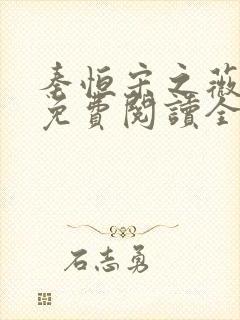 秦恒宋之薇
免費閱讀全
石志勇